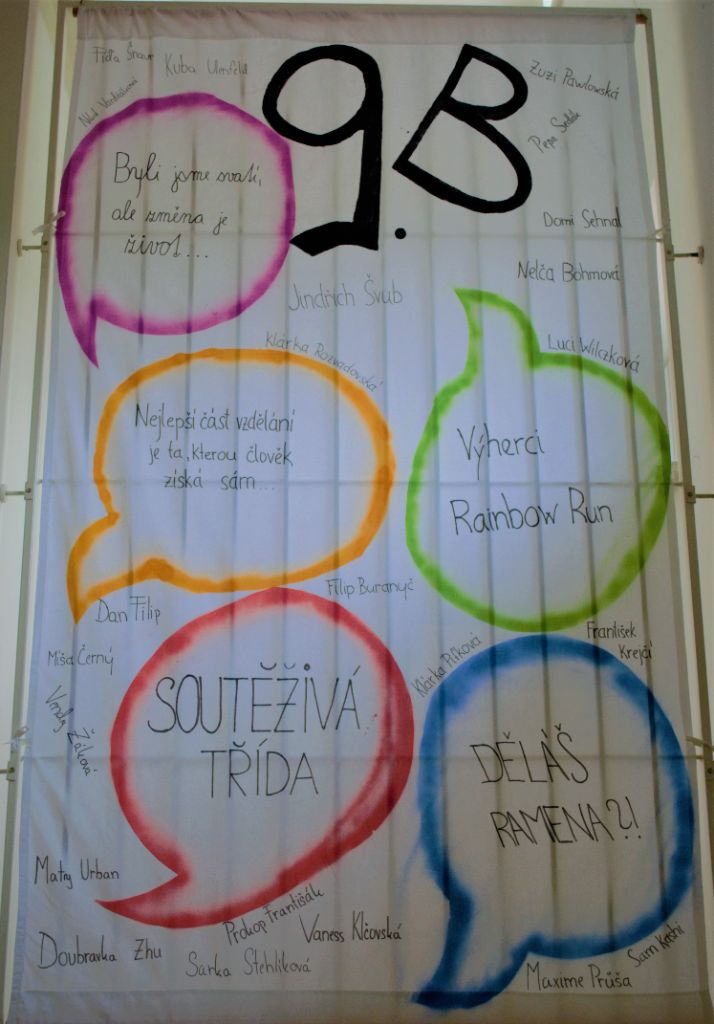 9.B
Kuba
Zuzi Pawlowská
Pepa
Byli jsme svatí,
ale změna je
život....
Domi Sehnal
Nelča Böhmová
Jindřich Švub
Klárka Rozvadovská
Luci Wilczková
Nejlepší část vzdělání
je ta, kterou člověk
získá sám...
Výherci
Rainbow Run
Filip Buranyč
Dan Filip
František
Krejčí
Míša Černý
Klárka Piřková
Vendy Žáková
SOUTĚŽIVÁ
TŘÍDA
DĚLÁŠ
RAMENA?!
Matěj Urban
Prokop Františák
Vaness Klčovská
Doubravka Zhu
Sarka Stehlíková
Sam Kashi
Maxime Průša